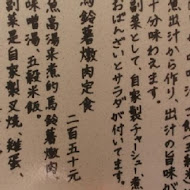 魚出汁から作り、出汁の旨味が
十分味わえます。
副菜として、自家製チャーシュー、煮
おばんざいとサラダが付いてます。
馬鈴薯燉肉定食 二百五十元
魚高湯来煮的馬鈴薯燉肉
味噌湯、五穀米飯。
副菜是自家製叉燒、雞蛋、